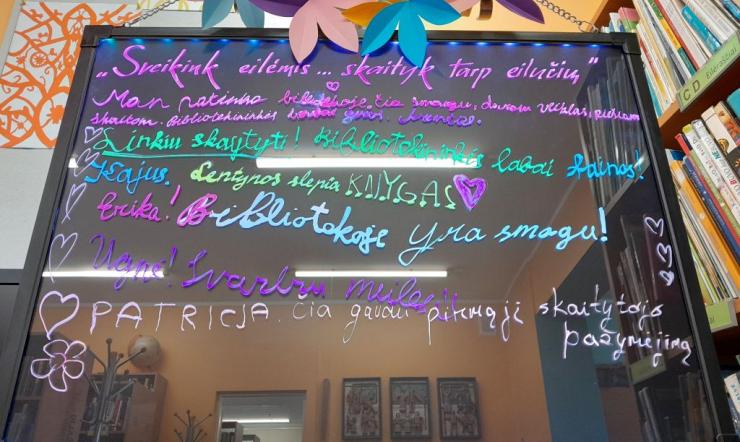 „Sveikink eilėmis... skaityk tarp eilučių"
Man patinka bibliotekoje, čia smagu, darom veiklas, piešiam
skaitom. Bibliotekininkės labai
Linkiu skaityti! Bibliotekininkės labai šaunios!
Isajus. Lentynos slepia KNYGAS
Erika! Bibliotekoje yra smagu!
Ugnė! Svarbu
PATRICIJA. Čia gavau pirmąjį skaitytojo
pažymėjimą
C D